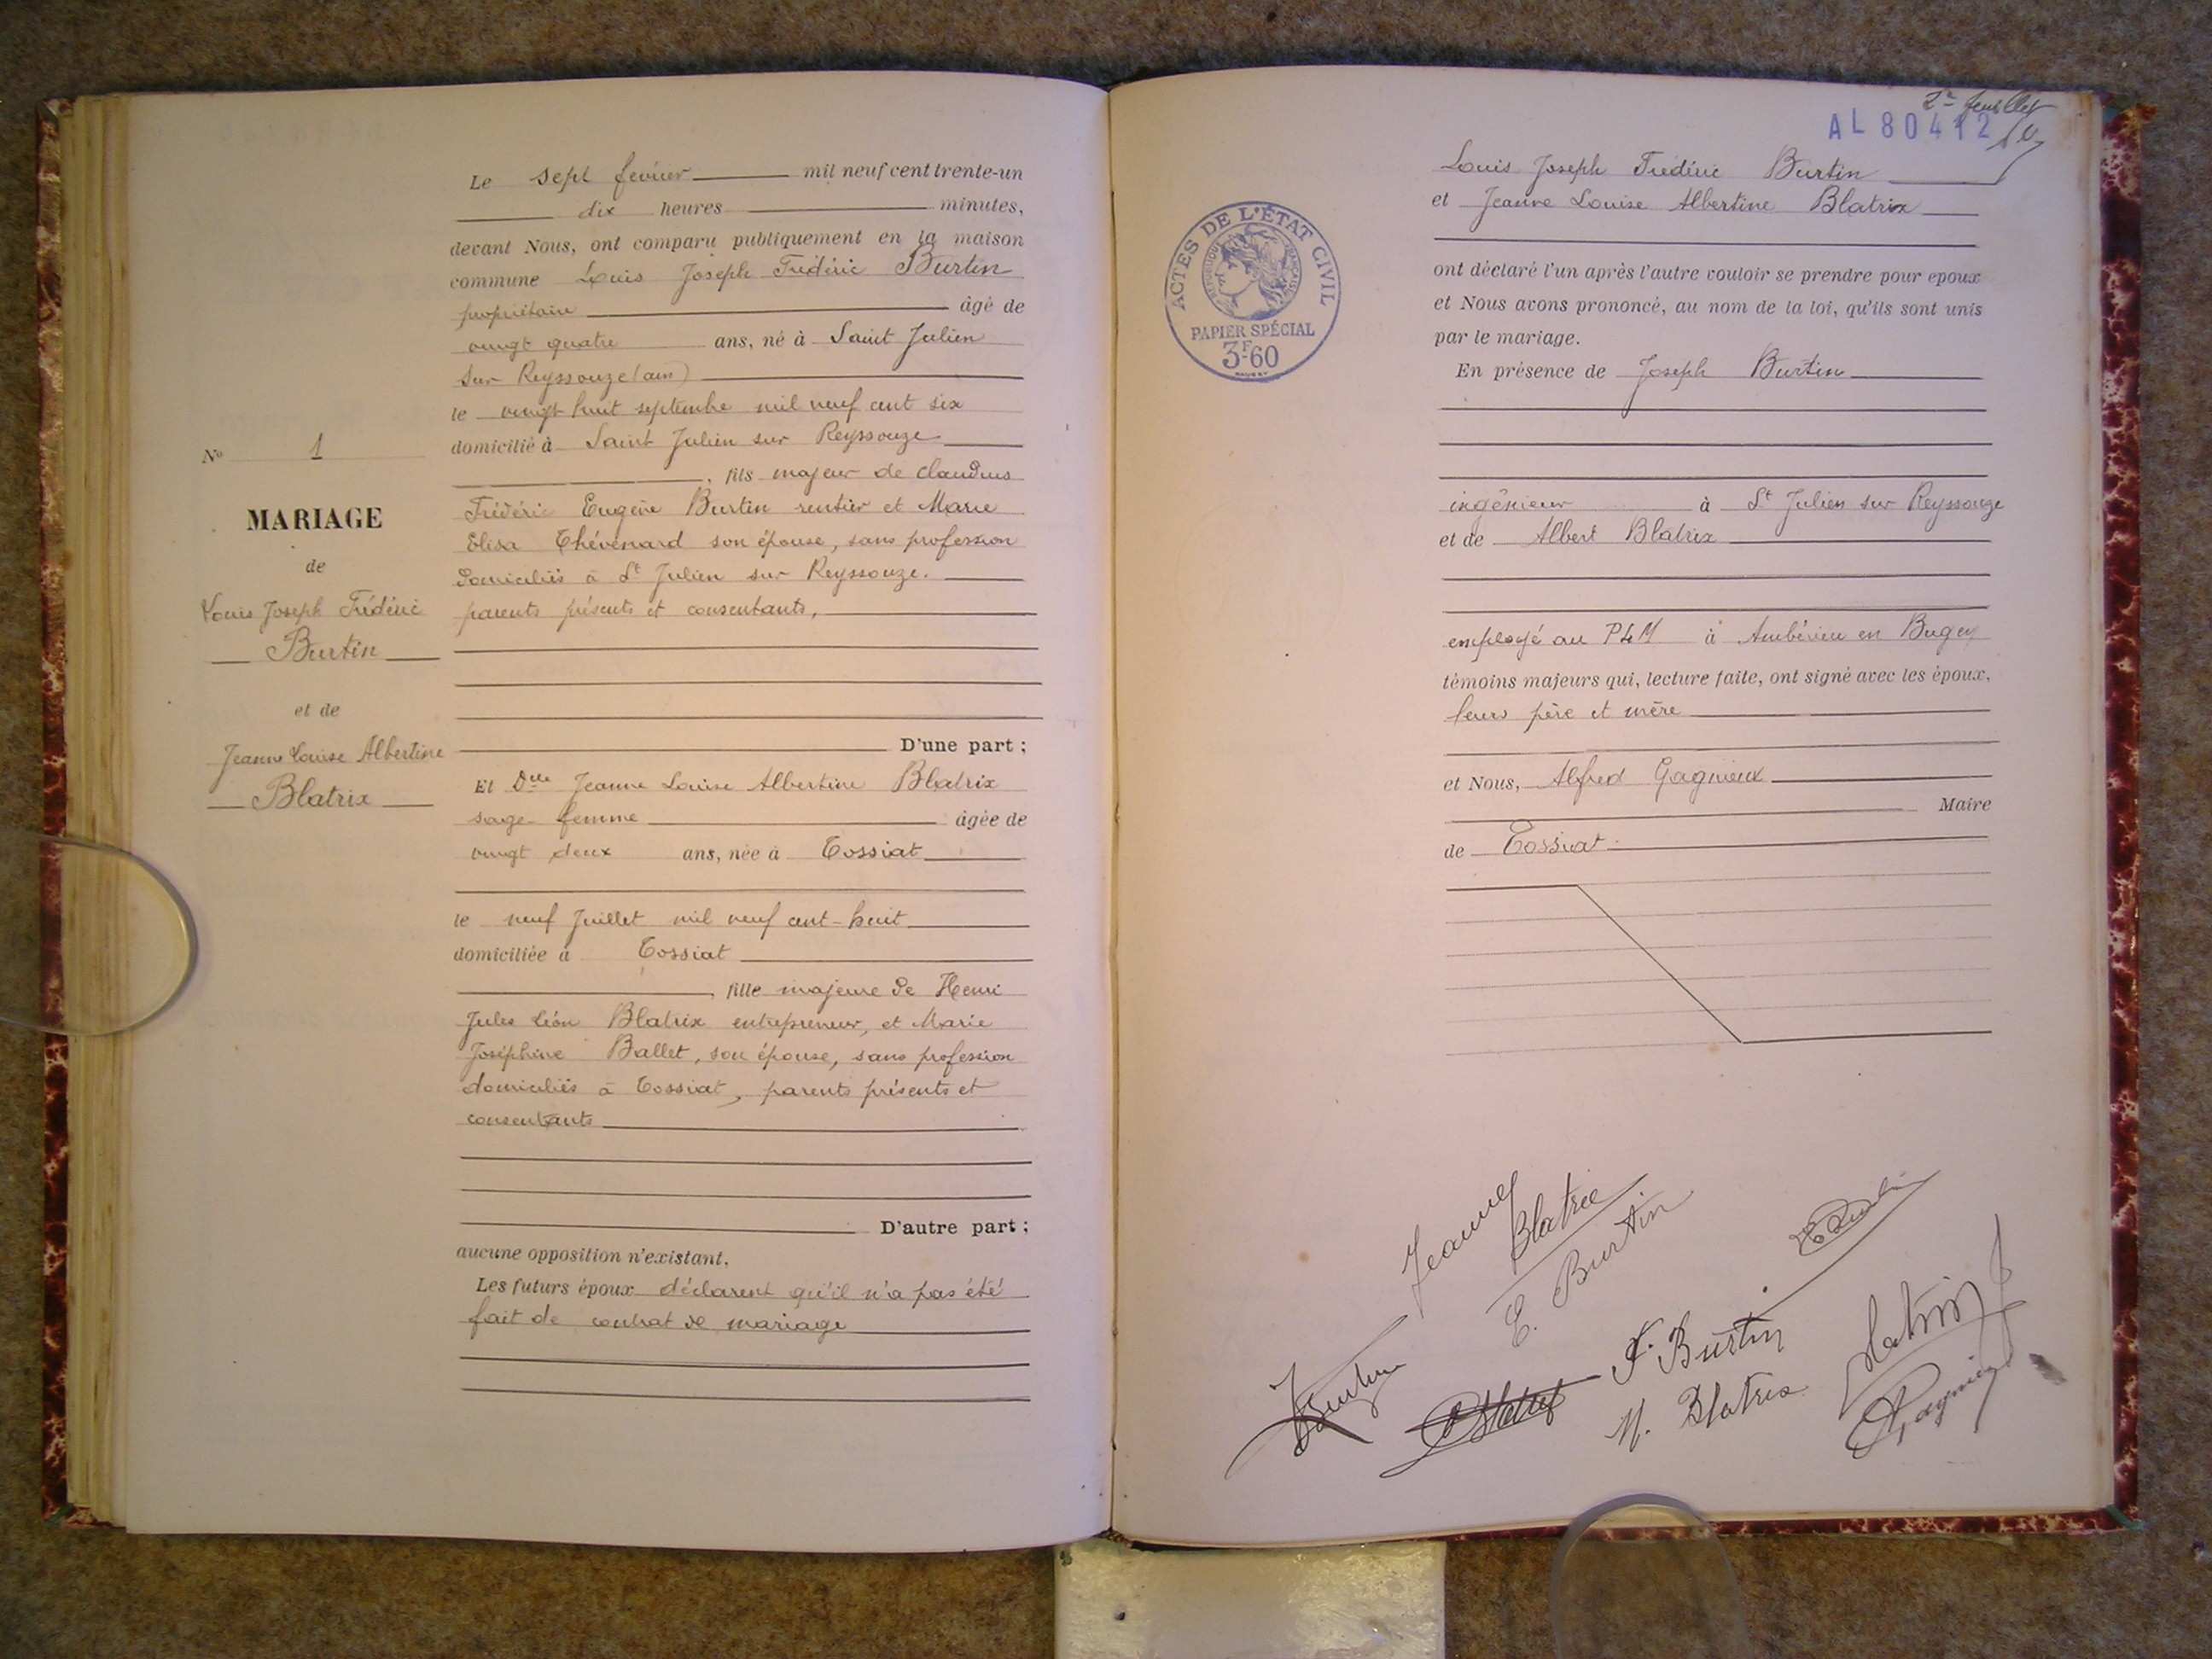 Le sept fevrier mil neuf cent trente-un
dix heures minutes,
devant Nous, ont comparu publiquement en la maison
commune Louis Joseph Frédéric Burtin
propriétaire âgé de
vingt quatre ans, né à Saint Julien
sur Reyssouze (ain)
le vingt huit septembre mil neuf cent six
domicilié à Saint Julien sur Reyssouze
, fils majeur de Claudius
Frédéric Eugène Burtin rentier et Marie
Elisa Thévenard son épouse, sans profession
domiciliés à St Julien sur Reyssouze.
parents présents et consentants,
D'une part ;
Et Dlle Jeanne Louise Albertine Blatrix
sage-femme âgée de
vingt deux ans, née à Tossiat
le neuf Juillet mil neuf cent-huit
domiciliée à Tossiat
, fille majeure de Henri
Jules Léon Blatrix entrepreneur, et Marie
Joséphine Ballet, son épouse, sans profession
domiciliés à Tossiat, parents présents et
consentants
D'autre part ;
aucune opposition n'existant.
Les futurs époux déclarent qu'il n'a pas été
fait de contrat de mariage
No 1
MARIAGE
de
Louis Joseph Frédéric
Burtin
et de
Jeanne Louise Albertine
Blatrix
2e feuillet
AL 80412
Louis Joseph Frédéric Burtin
et Jeanne Louise Albertine Blatrix
ont déclaré l'un après l'autre vouloir se prendre pour epoux
et Nous avons prononcé, au nom de la loi, qu'ils sont unis
par le mariage.
En présence de Joseph Burtin
ingénieur à St Julien sur Reyssouze
et de Albert Blatrix
employé au PLM à Ambérieu en Bugey
témoins majeurs qui, lecture faite, ont signé avec les époux,
leurs père et mère
et Nous, Alfred Gagnieux
Maire
de Tossiat.
ACTES DE L'ÉTAT CIVIL
RÉPUBLIQUE FRANÇAISE
PAPIER SPÉCIAL
3F60
Jeanne
Blatrix
E. Burtin
Burtin
F. Burtin
M. Blatrix
Blatrix